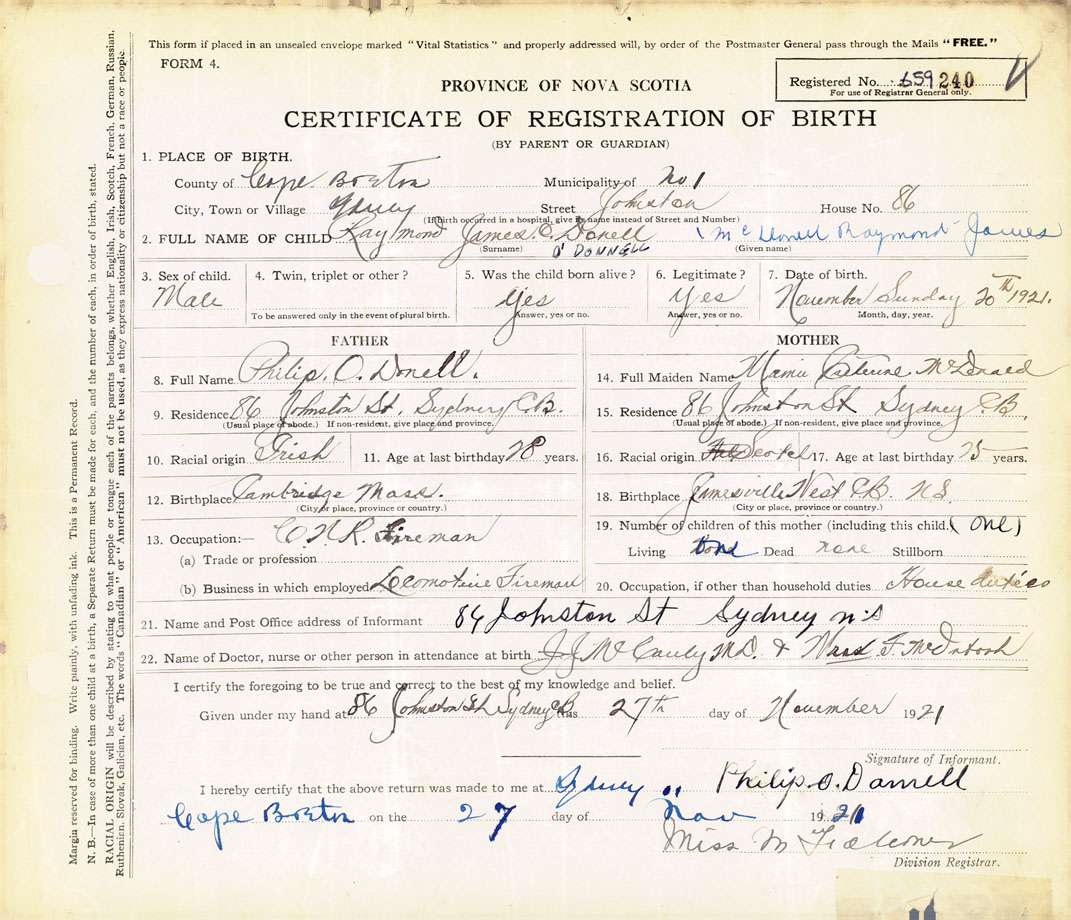 This form if placed in an unsealed envelope marked "Vital Statistics" and properly addressed will, by order of the Postmaster General pass through the Mails "FREE."
FORM 4.
Registered No. 659 240
For use of Registrar General only.
PROVINCE OF NOVA SCOTIA
CERTIFICATE OF REGISTRATION OF BIRTH
(BY PARENT OR GUARDIAN)
1. PLACE OF BIRTH.
County of Cape Breton Municipality of No 1
City, Town or Village Sydney Street Johnston House No. 86
(If birth occurred in a hospital, give its name instead of Street and Number)
2. FULL NAME OF CHILD Raymond James O. Donell (McDonell Raymond James
(Surname) O'DONNELL (Given name)
3. Sex of child. 4. Twin, triplet or other? 5. Was the child born alive? 6. Legitimate? 7. Date of birth.
Male Yes Yes November Sunday 20th 1921.
To be answered only in the event of plural birth. Answer, yes or no. Answer, yes or no. Month, day, year.
FATHER
8. Full Name Philip. O. Donell.
9. Residence 86 Johnston St. Sydney C.B.
(Usual place of abode.) If non-resident, give place and province.
10. Racial origin Irish 11. Age at last birthday 28 years.
12. Birthplace Cambridge Mass.
(City or place, province or country.)
13. Occupation:— C.N.R. Fireman
(a) Trade or profession
(b) Business in which employed Locomotive Fireman
MOTHER
14. Full Maiden Name Mamie Catherine McDonald
15. Residence 86 Johnston St Sydney C.B
(Usual place of abode.) If non-resident, give place and province.
16. Racial origin Scotch 17. Age at last birthday 25 years.
18. Birthplace Jamesville West C.B. N.S.
(City or place, province or country.)
19. Number of children of this mother (including this child. (one)
Living Dead none Stillborn
20. Occupation, if other than household duties House duties
21. Name and Post Office address of Informant 86 Johnston St Sydney N.S
22. Name of Doctor, nurse or other person in attendance at birth J J McCauly M.D. &
I certify the foregoing to be true and correct to the best of my knowledge and belief.
Given under my hand at 86 Johnston St Sydney CB this 27th day of November 1921
Signature of Informant.
Philip O. Donnell
I hereby certify that the above return was made to me at Sydney
Cape Breton on the 27 day of Nov 1921
Miss M Falconer
Division Registrar.
Margin reserved for binding. Write plainly, with unfading ink. This is a Permanent Record.
N. B.—In case of more than one child at a birth, a Separate Return must be made for each, and the number of each, in order of birth, stated.
RACIAL ORIGIN will be described by stating to what people or tongue each of the parents belongs, whether English, Irish, Scotch, French, German, Russian,
Ruthenian, Slovak, Galician, etc. The words "Canadian" or "American" must not be used, as they express nationality or citizenship but not a race or people.